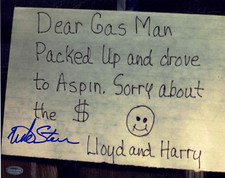 Dear Gas Man
Packed Up and drove
to Aspin. Sorry about
the $
Lloyd and Harry